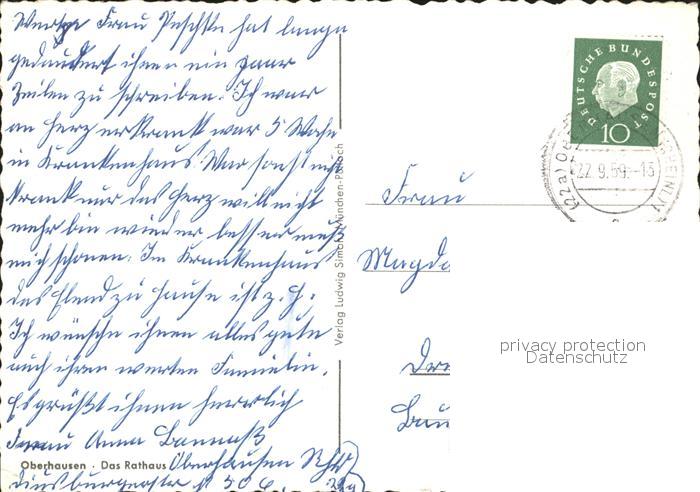 Werte Frau Peschke hat lange
gedauert ihnen ein paar
Zeilen zu schreiben. Ich war
an Herz erkrankt war 5 Woche
in Krankenhaus War sonst nie
krank nur das Herz will nicht
mehr bin wieder besser muß
mich schonen. Im Krankenhaus
das Elend zu Hause ist z. H.
Ich wünsche ihnen alles gute
auch ihren werten Familien.
Es grüßt ihnen herzlich
Frau Anna
Oberhausen · Das Rathaus Oberhausen Rhld
Duisburgerstr
Verlag Ludwig Simon, München-Pullach
DEUTSCHE BUNDESPOST
10
(22a) OBERHAUSEN (RHEINL)
22.9.59.-13
Frau
Magda
Dre
Bau
privacy protection
Datenschutz